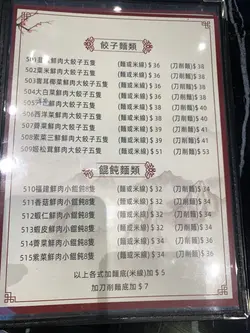 餃子麵類
501 鮮肉大餃子五隻 (麵或米線) $ 36 (刀削麵) $ 38
502 粟米鮮肉大餃子五隻 (麵或米線) $ 36 (刀削麵) $ 38
503 雲耳椰菜鮮肉大餃子五隻 (麵或米線) $ 36 (刀削麵) $ 38
504 大白菜鮮肉大餃子五隻 (麵或米線) $ 36 (刀削麵) $ 38
505 鮮肉大餃子五隻 (麵或米線) $ 38 (刀削麵) $ 40
506 西洋菜鮮肉大餃子五隻 (麵或米線) $ 38 (刀削麵) $ 40
507 薺菜鮮肉大餃子五隻 (麵或米線) $ 39 (刀削麵) $ 41
508 韮菜三鮮鮮肉大餃子五隻 (麵或米線) $ 39 (刀削麵) $ 41
509 姬松茸鮮肉大餃子五隻 (麵或米線) $ 51 (刀削麵) $ 53
餛飩麵類
510 福建鮮肉小餛飩8隻 (麵或米線) $ 32 (刀削麵) $ 34
511 香菇鮮肉小餛飩8隻 (麵或米線) $ 34 (刀削麵) $ 36
512 蝦仁鮮肉小餛飩8隻 (麵或米線) $ 34 (刀削麵) $ 36
513 蝦皮鮮肉小餛飩8隻 (麵或米線) $ 34 (刀削麵) $ 36
514 薺菜鮮肉小餛飩8隻 (麵或米線) $ 34 (刀削麵) $ 36
515 紫菜鮮肉小餛飩8隻 (麵或米線) $ 34 (刀削麵) $ 36
以上各式加麵底(米線)加 $ 5
加刀削麵底加 $ 7